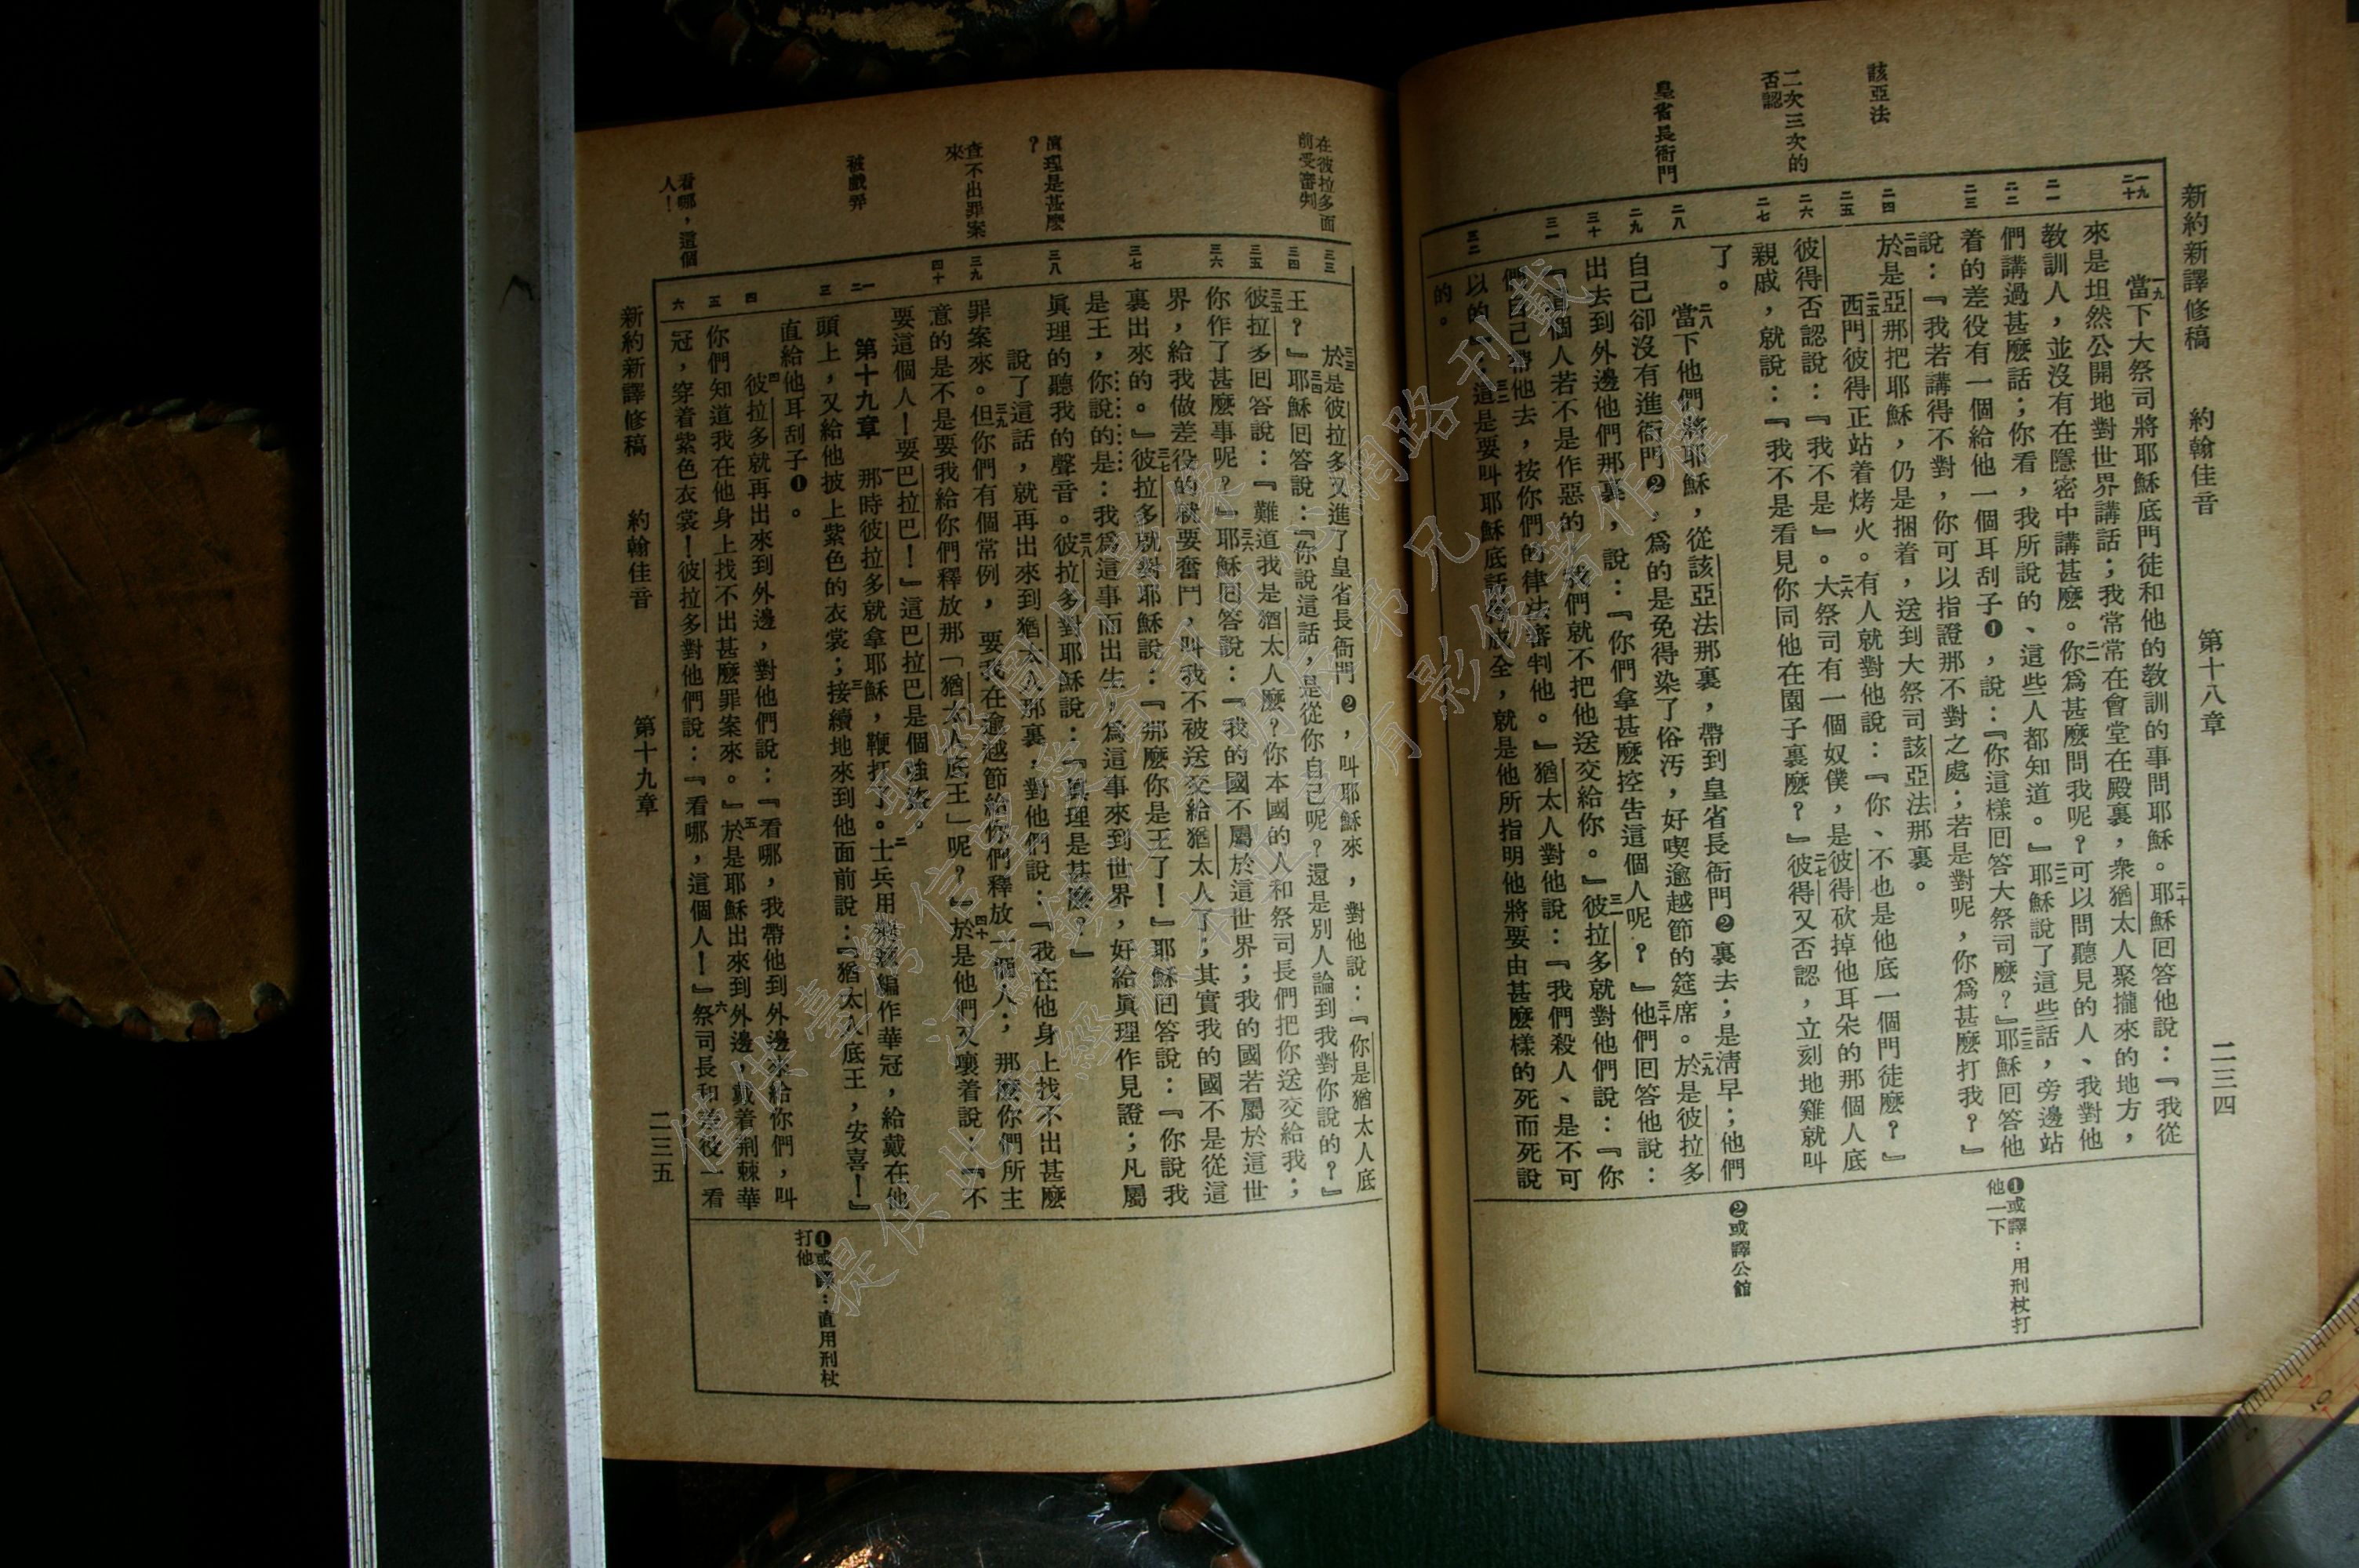 新約新譯修稿　約翰佳音　第十八章　二三四
該亞法
二次三次的
否認
皇省長衙門
一九
二十
二一
二二
二三
二四
二五
二六
二七
二八
二九
三十
三一
三二
一九當下大祭司將耶穌底門徒和他的教訓的事問耶穌。二十耶穌回答他說：『我從
來是坦然公開地對世界講話；我常常在會堂在殿裏，衆猶太人聚攏來的地方，
教訓人，並沒有在隱密中講甚麼。二一你爲甚麼問我呢？可以問聽見的人、我對他
們講過甚麼話；你看，我所說的、這些人都知道。』二二耶穌說了這些話，旁邊站
着的差役有一個給他一個耳刮子❶，說：『你這樣回答大祭司麼？』二三耶穌回答他
說：『我若講得不對，你可以指證那不對之處；若是對呢，你爲甚麼打我？』
二四於是亞那把耶穌，仍是捆着，送到大祭司該亞法那裏。
二五西門彼得正站着烤火。有人就對他說：『你、不也是他底一個門徒麼？』
彼得否認說：『我不是』。二六大祭司有一個奴僕，是彼得砍掉他耳朵的那個人底
親戚，就說：『我不是看見你同他在園子裏麼？』二七彼得又否認，立刻地雞就叫
了。
二八當下他們將耶穌，從該亞法那裏，帶到皇省長衙門❷裏去；是清早；他們
自己卻沒有進衙門❷，爲的是免得染了俗污，好喫逾越節的筵席。二九於是彼拉多
出去到外邊他們那裏，說：『你們拿甚麼控告這個人呢？』三十他們回答他說：
『這個人若不是作惡的，我們就不把他送交給你。』三一彼拉多就對他們說：『你
們自己帶他去，按你們的律法審判他。』猶太人對他說：『我們殺人、是不可
以的』；三二這是要叫耶穌底話得成全，就是他所指明他將要由甚麼樣的死而死說
的。
❶或譯：用刑杖打
他一下
❷或譯公館
在彼拉多面
前受審判
眞理是甚麼
？
查不出罪案
來
被戲弄
看哪，這個
人！
三三
三四
三五
三六
三七
三八
三九
四十
一
二
三
四
五
六
三三於是彼拉多又進了皇省長衙門❷，叫耶穌來，對他說：『你是猶太人底
王？』三四耶穌回答說：『你說這話，是從你自己呢？還是別人論到我對你說的？』
三五彼拉多回答說：『難道我是猶太人麼？你本國的人和祭司長們把你送交給我；
你作了甚麼事呢？』三六耶穌回答說：『我的國不屬於這世界；我的國若屬於這世
界，給我做差役的就要奮鬥，叫我不被送交給猶太人了；其實我的國不是從這
裏出來的。』三七彼拉多就對耶穌說：『那麼你是王了！』耶穌回答說：『你說我
是王，你說的是：我爲這事而出生，爲這事來到世界，好給眞理作見證；凡屬
眞理的聽我的聲音。三八彼拉多對耶穌說：『眞理是甚麼？』
說了這話，就再出來到猶太人那裏，對他們說：『我在他身上找不出甚麼
罪案來。三九但你們有個常例，要我在逾越節給你們釋放一個人；那麼你們所主
意的是不是要我給你們釋放那「猶太人底王」呢？』四十於是他們又嚷着說：『不
要這個人！要巴拉巴！』這巴拉巴是個強盜。
第十九章　一那時彼拉多就拿耶穌，鞭打了。二士兵用荊棘編作華冠，給戴在他
頭上，又給他披上紫色的衣裳；三接續地來到他面前說：『猶太人底王，安喜！』
直給他耳刮子❶。
四彼拉多就再出來到外邊，對他們說：『看哪，我帶他到外邊來給你們，叫
你們知道我在他身上找不出甚麼罪案來。』五於是耶穌出來到外邊，戴着荊棘華
冠，穿着紫色衣裳！彼拉多對他們說：『看哪，這個人！』六祭司長和差役一看
❶或譯：直用刑杖
打他
新約新譯修稿　約翰佳音　第十九章　二三五